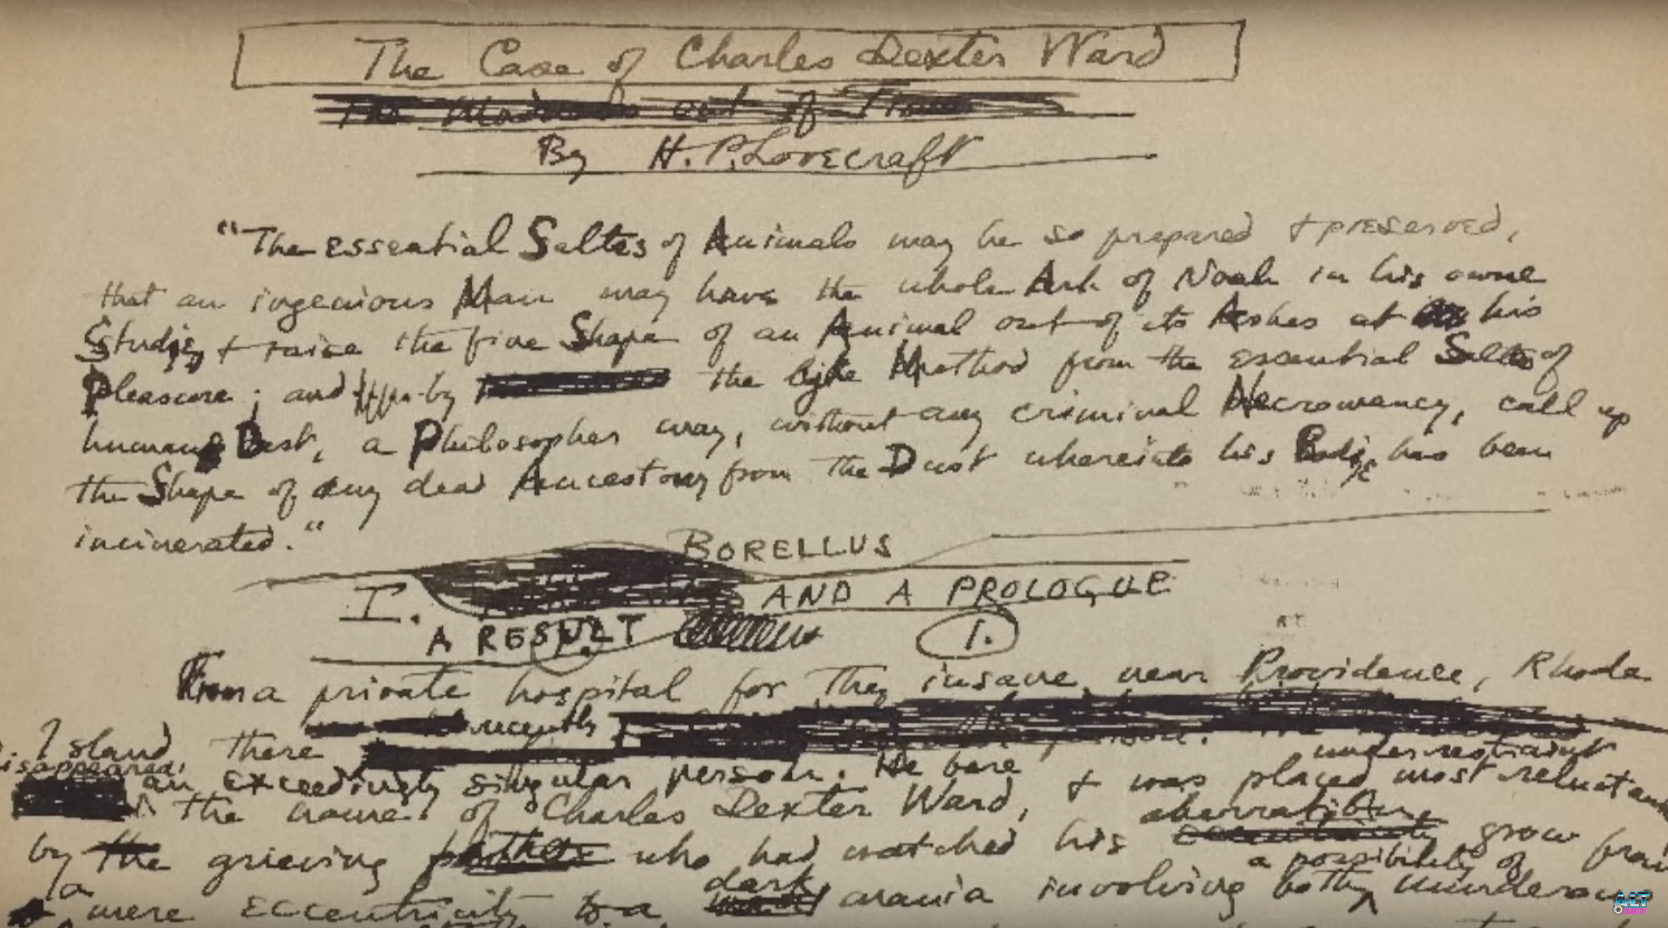 The Case of Charles Dexter Ward
out of
By H. P. Lovecraft
"The essential Saltes of Animals may be so prepared & preserved,
that an ingenious Man may have the whole Ark of Noah in his owne
Studie, & raise the fine Shape of an Animal out of its Ashes at his
Pleasure; and by the lyke Method from the essential Saltes of
humane Dust, a Philosopher may, without any criminal Necromancy, call up
the Shape of any dead Ancestour from the Dust whereinto his Bodie has been
incinerated."
BORELLUS
I. AND A PROLOGUE
A RESULT 1.
From a private hospital for the insane near Providence, Rhode
recently
Island, there person. under restraint
disappeared an exceedingly singular person. He bore & was placed most reluctan
the name of Charles Dexter Ward, aberration
by the grieving father who had watched his grow from
a dark a possibility of
mere eccentricity to a mania involving both murderous
ALT